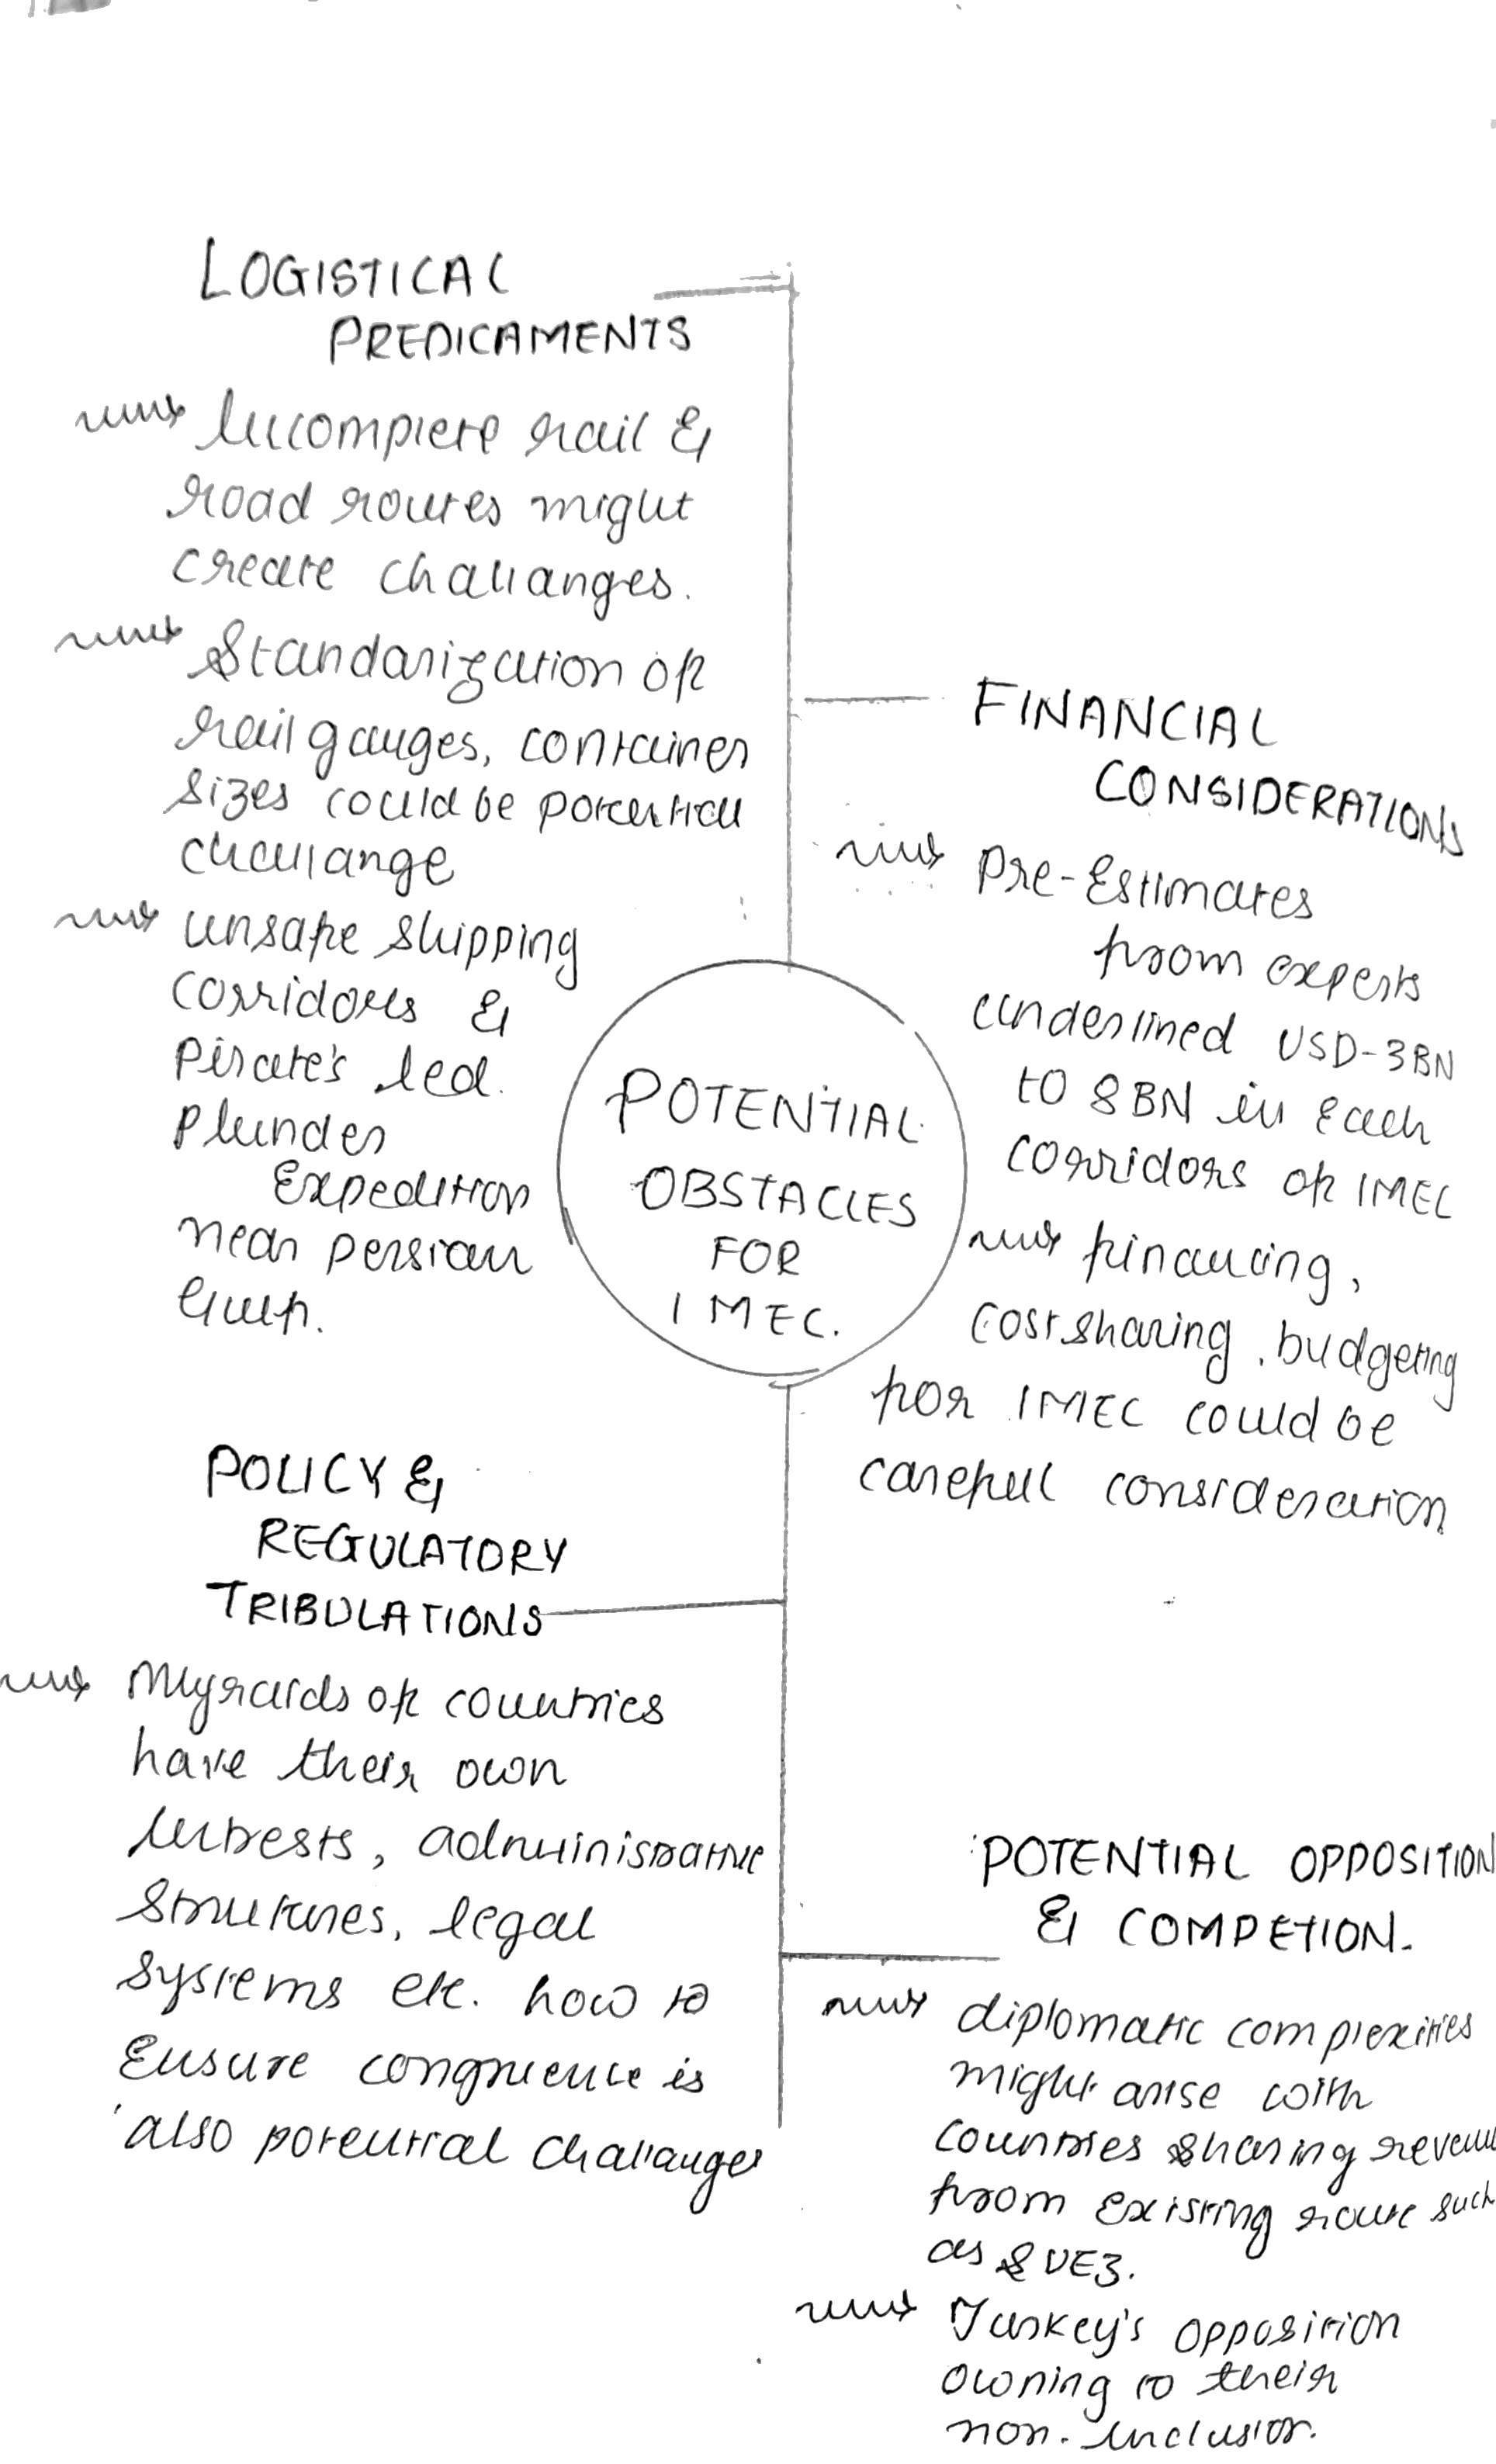 LOGISTICAL
PREDICAMENTS
Incomplete rail &
road routes might
create challanges.
Standarization of
rail gauges, container
sizes could be potential
challange
unsafe shipping
corridors &
Pirate's led
Plunder
Expedition
near persian
Gulf.
FINANCIAL
CONSIDERATIONS
Pre-Estimates
from experts
underlined USD-3BN
to 8BN in each
corridors of IMEC
financing,
cost sharing, budgeting
for IMEC could be
carefull consideration
POTENTIAL
OBSTACLES
FOR
IMEC.
POLICY &
REGULATORY
TRIBULATIONS
Myraids of countries
have their own
Intrests, administrative
Strutures, legal
systems etc. how to
Ensure congruence is
also potential challanges
POTENTIAL OPPOSITION
& COMPETION.
diplomatic complexities
might arise with
countries sharing
from existing route such
as SUEZ.
Turkey's opposition
owning to their
non-inclusion.